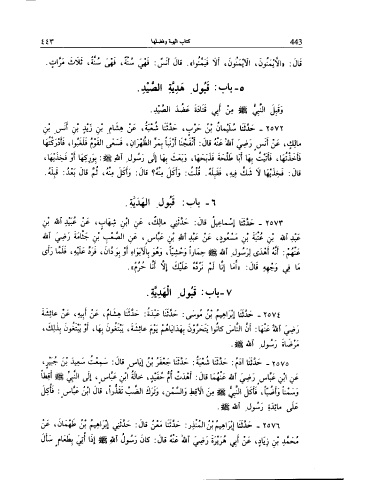 443 كتاب الهبة وفضلها ٤٤٣
قَالَ: «الأَيْمَنُونَ، الأَيْمَنُونَ، أَلَا فَيَمِّنُوا». قَالَ أَنَسٌ: فَهْيَ سُنَّةٌ، فَهْيَ سُنَّةٌ، ثَلَاثَ مَرَّاتٍ.
٥ - باب: قَبُولِ هَدِيَّةِ الصَّيْدِ.
وَقَبِلَ النَّبِيُّ ﷺ مِنْ أَبِي قَتَادَةَ عَضُدَ الصَّيْدِ.
٢٥٧٢ - حَدَّثَنَا سُلَيْمَانُ بْنُ حَرْبٍ، حَدَّثَنَا شُعْبَةُ، عَنْ هِشَامِ بْنِ زَيْدِ بْنِ أَنَسِ بْنِ
مالِكٍ، عَنْ أَنَسٍ رَضِيَ اللهُ عَنْهُ قالَ: أَنْفَجْنَا أَرْنَبًا بِمَرِّ الظَّهْرَانِ، فَسَعَى الْقَوْمُ فَلَغَبُوا، فَأَدْرَكْتُهَا
فَأَخَذْتُهَا، فَأَتَيْتُ بِهَا أَبَا طَلْحَةَ فَذَبَحَهَا، وَبَعَثَ بِهَا إِلَى رَسُولِ اللهِ ﷺ: بِوَرِكِهَا أَوْ فَخِذَيْهَا،
قالَ: فَخِذَيْهَا لَا شَكَّ فِيهِ، فَقَبِلَهُ. قُلْتُ: وَأَكَلَ مِنْهُ؟ قالَ: وَأَكَلَ مِنْهُ، ثُمَّ قالَ بَعْدُ: قَبِلَهُ.
٦ - باب: قَبُولِ الهَدِيَّةِ.
٢٥٧٣ - حَدَّثَنَا إِسْماعِيلُ قالَ: حَدَّثَنِي مالِكٌ، عَنِ ابْنِ شِهَابٍ، عَنْ عُبَيْدِ اللهِ بْنِ
عَبْدِ اللهِ بْنِ عُتْبَةَ بْنِ مَسْعُودٍ، عَنْ عَبْدِ اللهِ بْنِ عَبَّاسٍ، عَنِ الصَّعْبِ بْنِ جَثَّامَةَ رَضِيَ اللهُ
عَنْهُمْ: أَنَّهُ أَهْدَى لِرَسُولِ اللهِ ﷺ حِمَارًا وَحْشِيًّا، وَهُوَ بِالأَبْوَاءِ أَوْ بِوَدَّانَ، فَرَدَّ عَلَيْهِ، فَلَمَّا رَأَى
ما فِي وَجْهِهِ قالَ: «أَمَا إِنَّا لَمْ نَرُدَّهُ عَلَيْكَ إِلَّا أَنَّا حُرُمٌ».
٧ - باب: قَبُولِ الْهَدِيَّةِ.
٢٥٧٤ - حَدَّثَنَا إِبْرَاهِيمُ بْنُ مُوسَى: حَدَّثَنَا عَبْدَةُ: حَدَّثَنَا هِشَامٌ، عَنْ أَبِيهِ، عَنْ عائِشَةَ
رَضِيَ اللهُ عَنْهَا: أَنَّ النَّاسَ كانُوا يَتَحَرَّوْنَ بِهَدَايَاهُمْ يَوْمَ عائِشَةَ، يَبْتَغُونَ بِهَا، أَوْ يَبْتَغُونَ بِذٰلِكَ،
مَرْضَاةَ رَسُولِ اللهِ ﷺ.
٢٥٧٥ - حَدَّثَنَا آدَمُ: حَدَّثَنَا شُعْبَةُ: حَدَّثَنَا جَعْفَرُ بْنُ إِيَاسٍ قالَ: سَمِعْتُ سَعِيدَ بْنَ جُبَيْرٍ،
عَنِ ابْنِ عَبَّاسٍ رَضِيَ اللهُ عَنْهُمَا قالَ: أَهْدَتْ أُمُّ حُفَيْدٍ، خالَةُ ابْنِ عَبَّاسٍ، إِلَى النَّبِيِّ ﷺ أَقِطًا
وَسَمْنًا وَأَضُبًّا، فَأَكَلَ النَّبِيُّ ﷺ مِنَ الأَقِطِ وَالسَّمْنِ، وَتَرَكَ الضَّبَّ تَقَذُّرًا، قالَ ابْنُ عَبَّاسٍ: فَأُكِلَ
عَلَى مائِدَةِ رَسُولِ اللهِ ﷺ.
٢٥٧٦ - حَدَّثَنَا إِبْرَاهِيمُ بْنُ الْمُنْذِرِ: حَدَّثَنَا مَعْنٌ قالَ: حَدَّثَنِي إِبْرَاهِيمُ بْنُ طَهْمَانَ، عَنْ
مُحَمَّدِ بْنِ زِيَادٍ، عَنْ أَبِي هُرَيْرَةَ رَضِيَ اللهُ عَنْهُ قالَ: كانَ رَسُولُ اللهِ ﷺ إِذَا أُتِيَ بِطَعَامٍ سَأَلَ